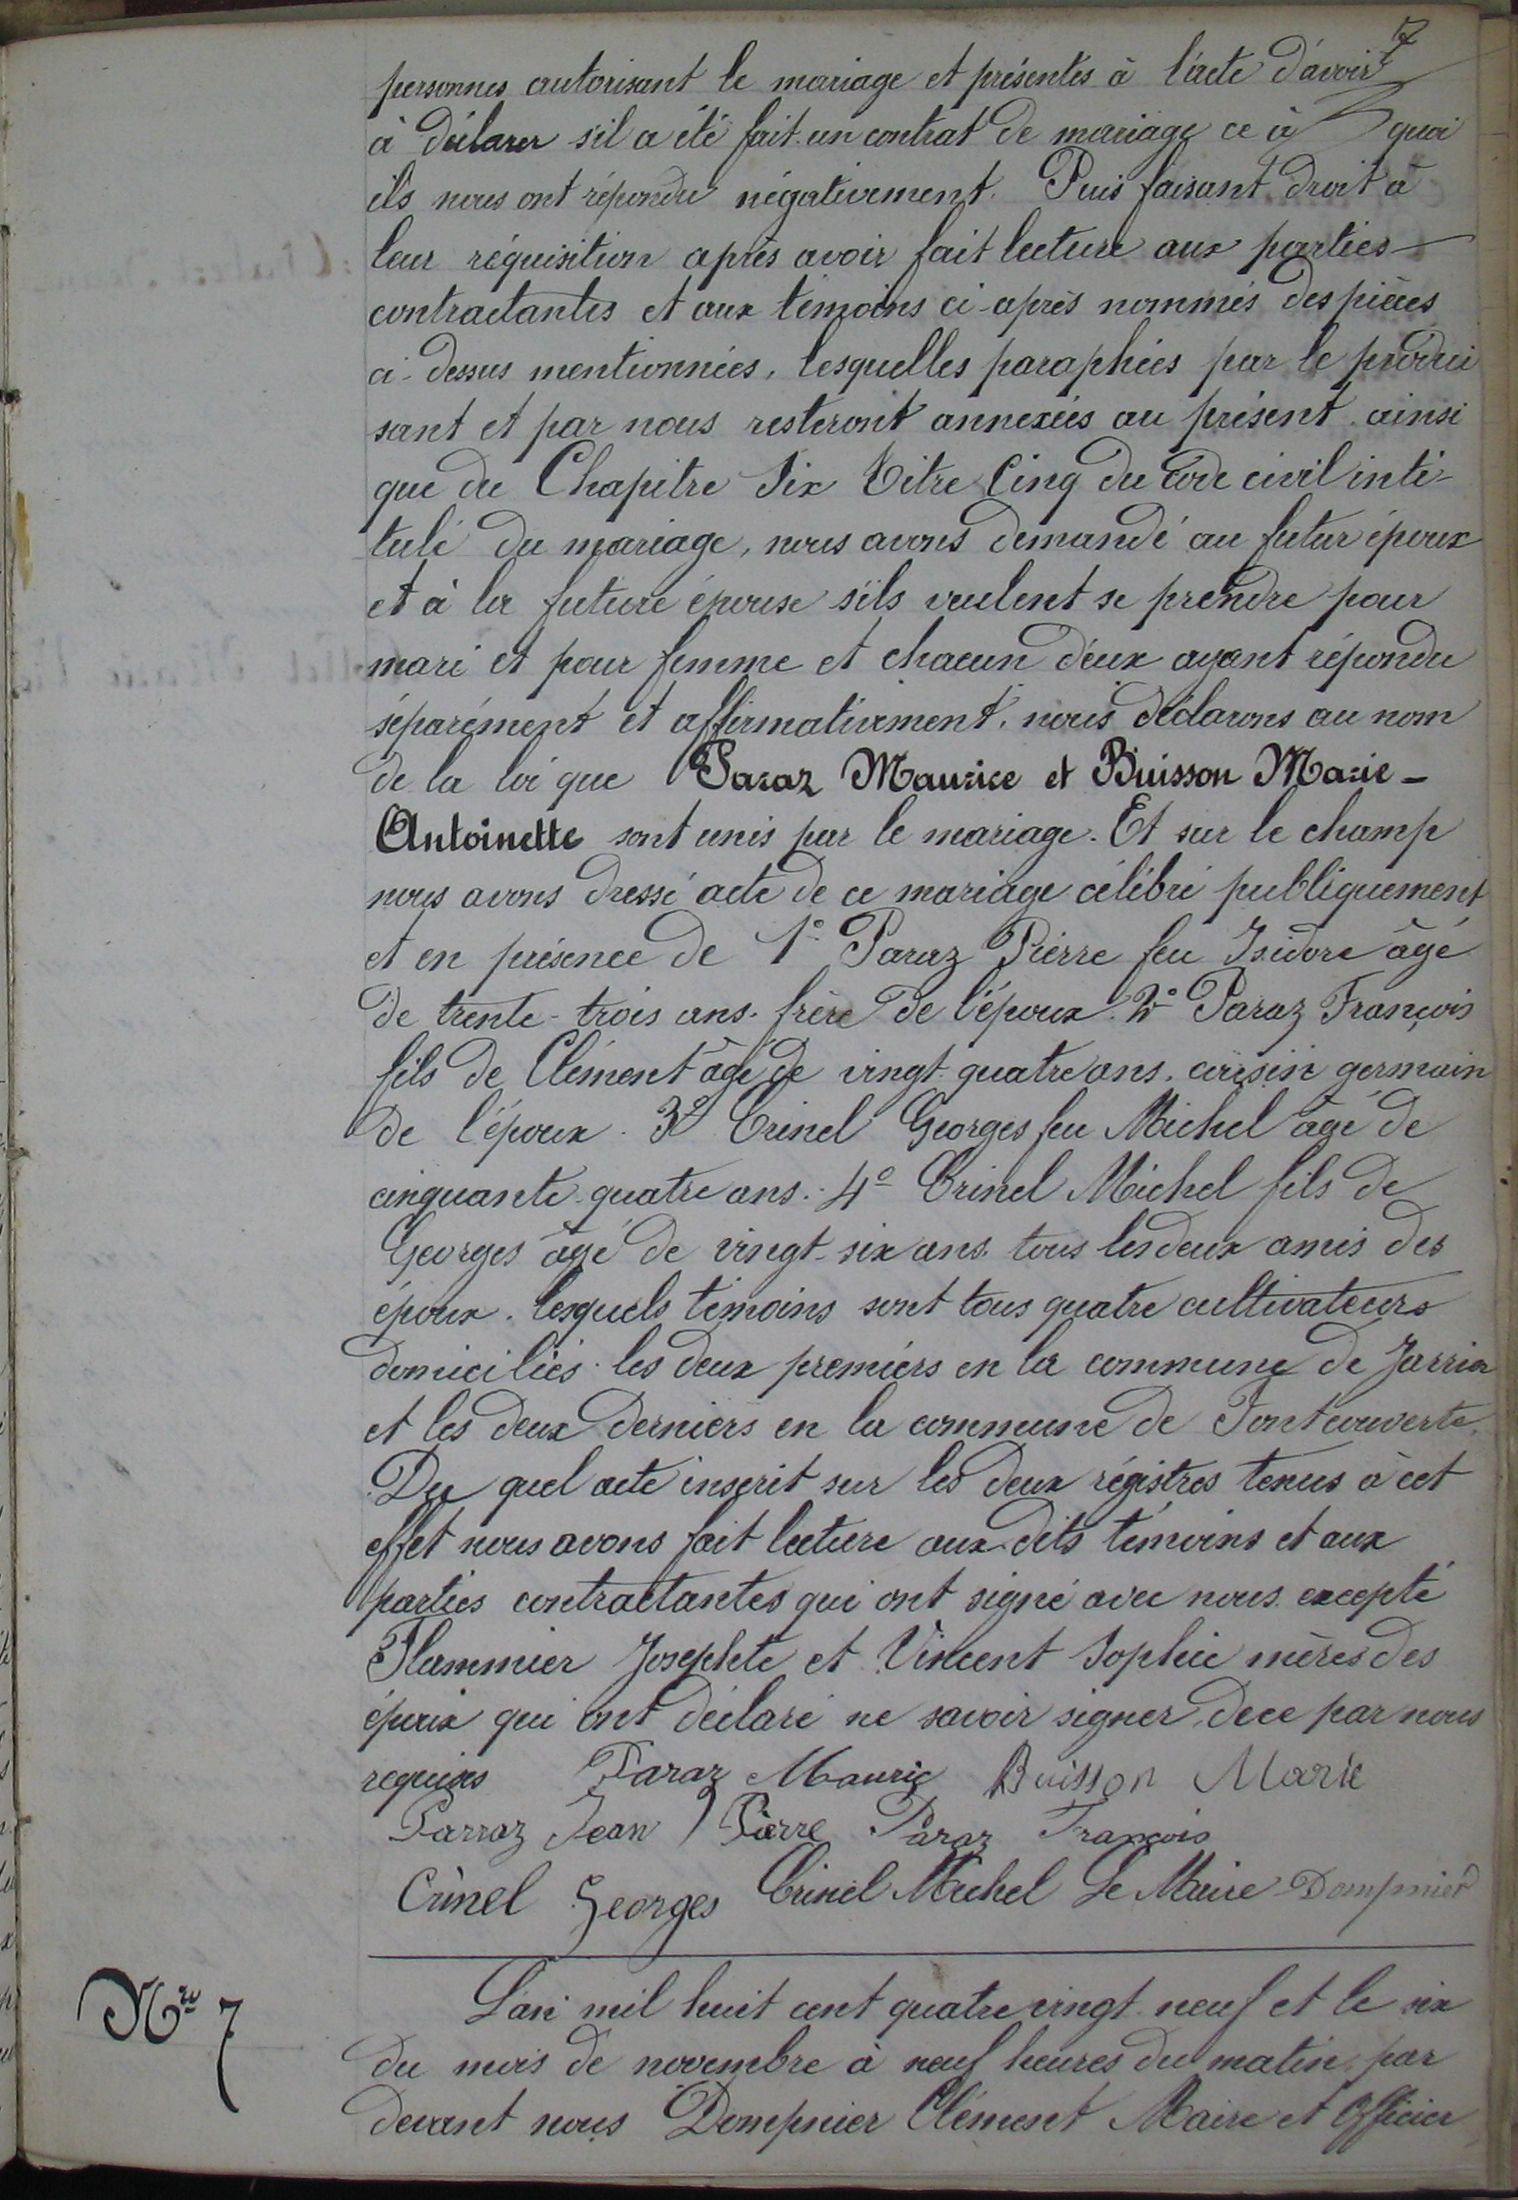 7
personnes autorisant le mariage et présentes à l'acte d'avoir
à déclarer s'il a été fait un contrat de mariage ce à quoi
ils nous ont répondu négativement. Puis faisant droit à
leur réquisition après avoir fait lecture aux parties
contractantes et aux témoins ci-après nommés des pièces
ci-dessus mentionnées, lesquelles paraphées par le produi
sant et par nous resteront annexées au présent ainsi
que du Chapitre Six Titre Cinq du Code civil inti-
tulé du mariage, nous avons demandé au futur époux
et à la future épouse s'ils veulent se prendre pour
mari et pour femme et chacun d'eux ayant répondu
séparément et affirmativement, nous déclarons au nom
de la loi que Paraz Maurice et Buisson Marie-
Antoinette sont unis par le mariage. Et sur le champ
nous avons dressé acte de ce mariage célébré publiquement
et en présence de 1° Paraz Pierre feu Isidore âgé
de trente-trois ans. frère de l'époux. 2° Paraz François
fils de Clément âgé de vingt quatre ans. cousin germain
de l'époux. 3° Crinel Georges feu Michel âgé de
cinquante-quatre ans. 4° Crinel Michel fils de
Georges âgé de vingt-six ans. tous les deux amis des
époux. lesquels témoins sont tous quatre cultivateurs
domiciliés les deux premiers en la commune de Jarrier
et les deux derniers en la commune de Fontcouverte.
Du quel acte inscrit sur les deux régistres tenus à cet
effet nous avons fait lecture aux dits témoins et aux
parties contractantes qui ont signé avec nous excepté
Flammier Josephte et Vincent Sophie mères des
époux qui ont déclaré ne savoir signer, de ce par nous
requises Paraz Mauric Buisson Marie
Parraz Jean Pierre Paraz François
Crinel Georges Crinel Michel Le Maire Dompnier
Nro 7
L'an mil huit cent quatre vingt neuf et le six
du mois de novembre à neuf heures du matin, par
devant nous Dompnier Clément Maire et Officier